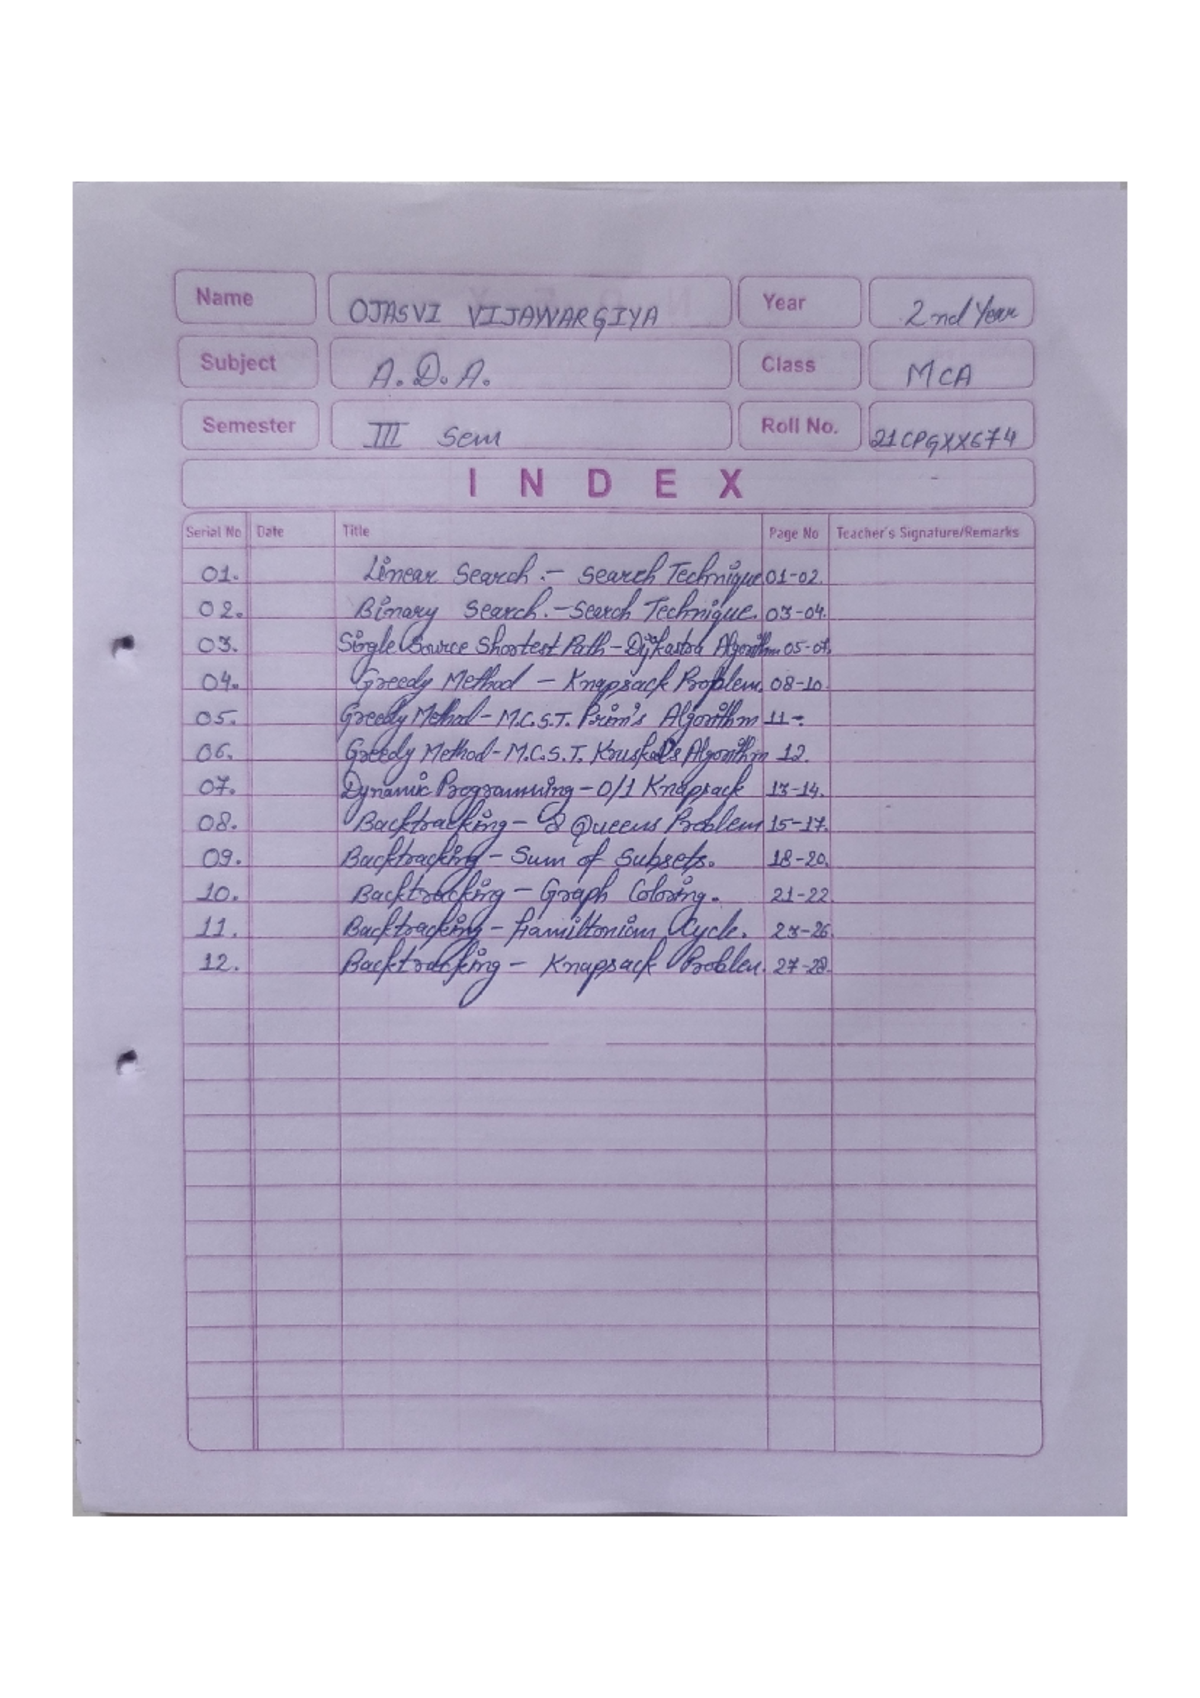 Name OJASVI VIJAYVARGIYA Year 2nd Year
Subject A.D.A. Class MCA
Semester III Sem Roll No. 21CPGXX674
INDEX
Serial No Date Title Page No Teacher's Signature/Remarks
01. Linear Search :- Search Technique 01-02.
02. Binary Search. - Search Technique. 03-04.
03. Single Source Shortest Path - Dijkastra Algorithm 05-07.
04. Greedy Method - Knapsack Problem. 08-10.
05. Greedy Method - M.C.S.T. Prim's Algorithm 11-
06. Greedy Method - M.C.S.T. Kruskal's Algorithm 12.
07. Dynamic Programming - 0/1 Knapsack 13-14.
08. Backtracking - 8 Queens Problem 15-17.
09. Backtracking - Sum of Subsets. 18-20.
10. Backtracking - Graph Coloring. 21-22.
11. Backtracking - Hamiltonian Cycle. 23-26.
12. Backtracking - Knapsack Problem. 27-28.